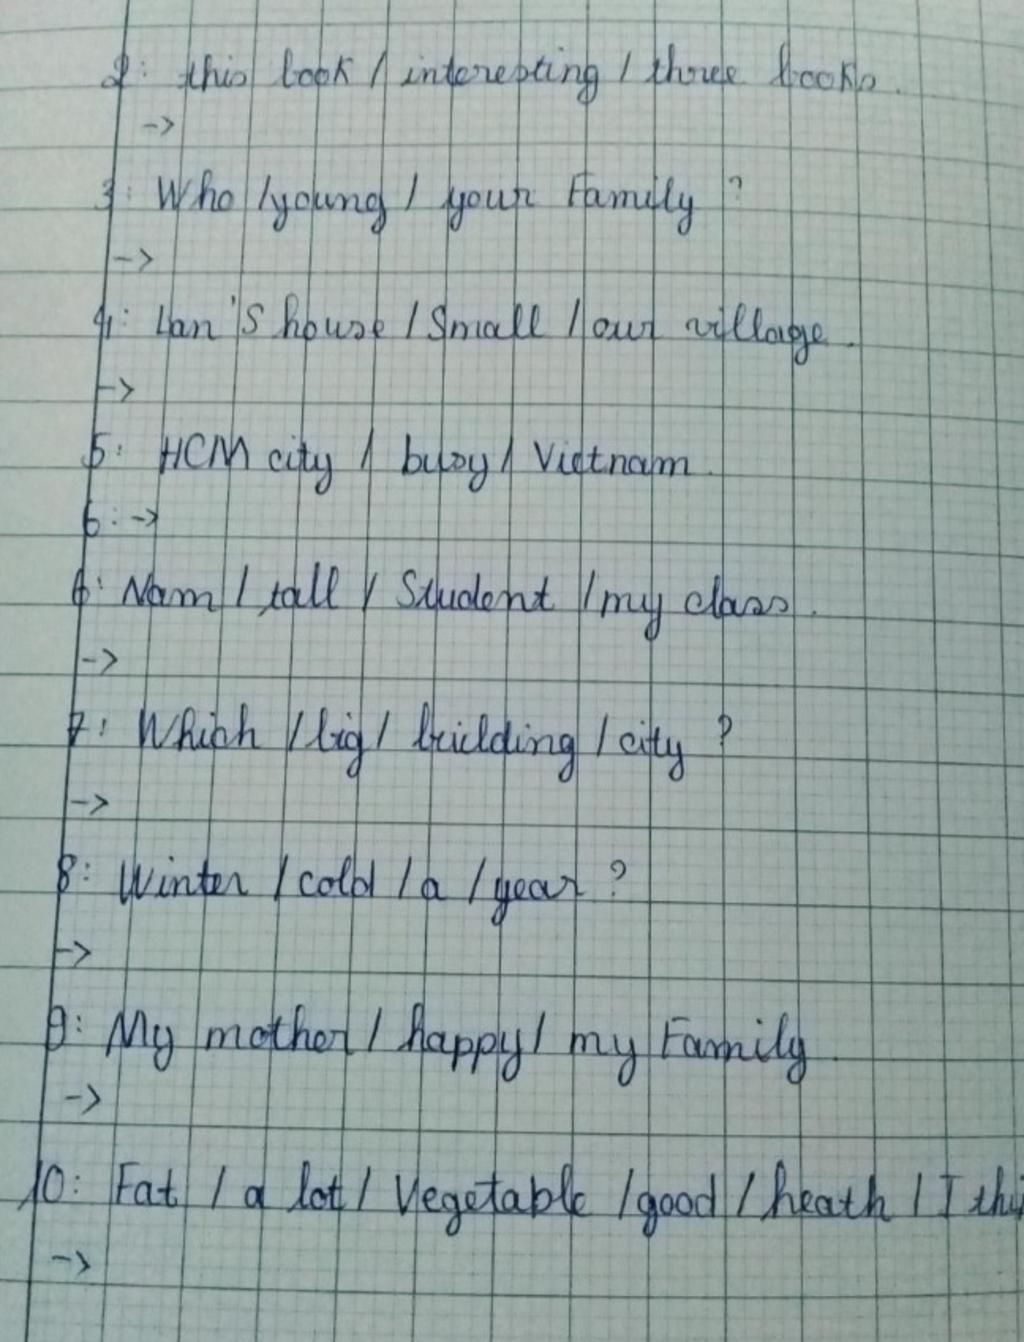 2: this book / interesting / three books.
->
3: Who / young / your Family ?
->
4: Lan's house / Small / our village.
->
5: HCM city / busy / Vietnam.
6: ->
6: Nam / tall / Student / my class.
->
7: Which / big / building / city ?
->
8: Winter / cold / a / year ?
->
9: My mother / happy / my Family
->
10: Eat / a lot / Vegetable / good / heath / I thi
->